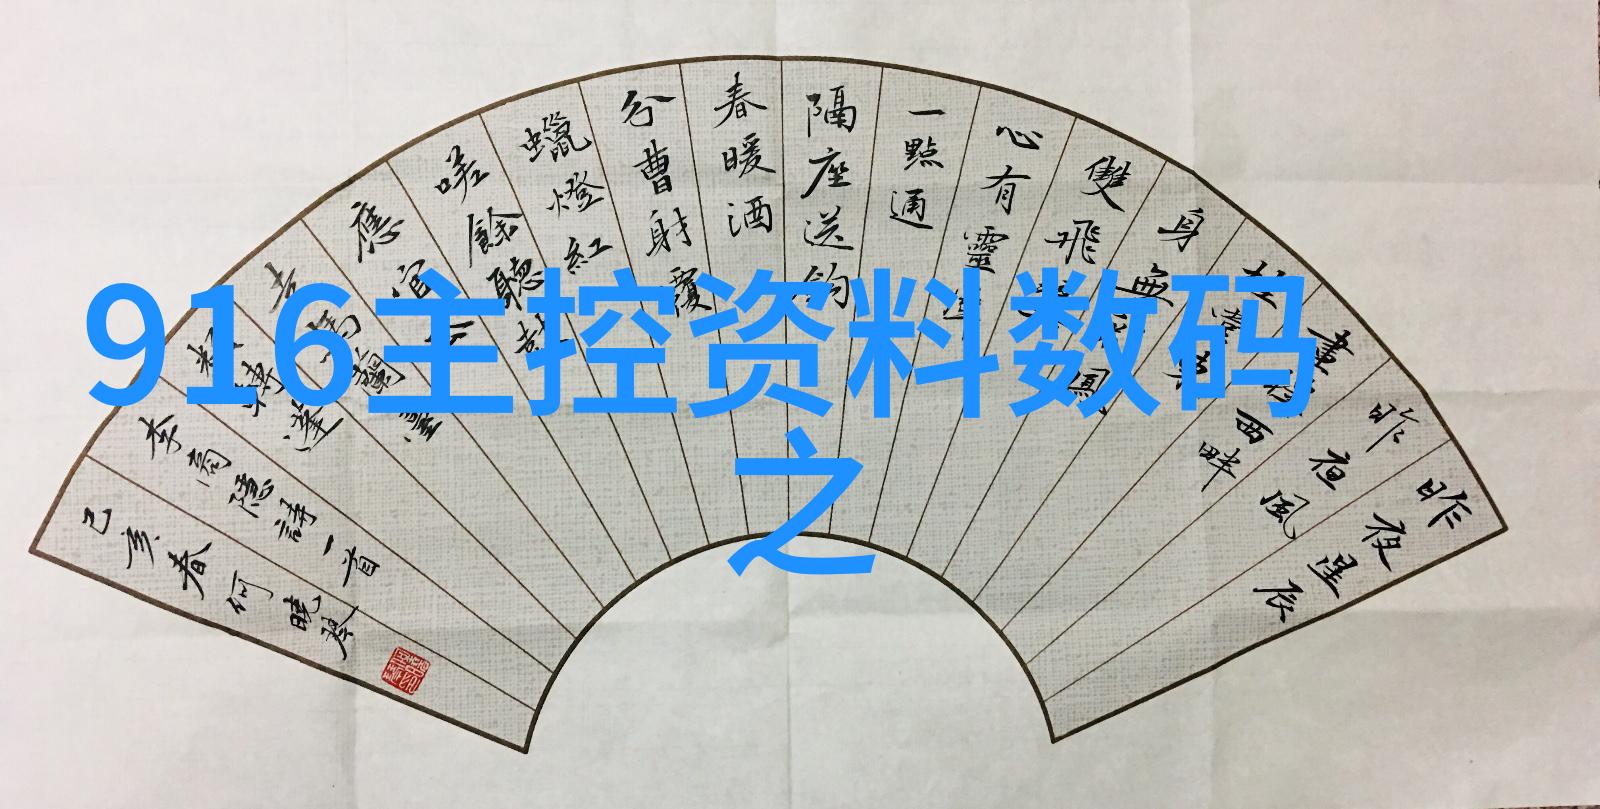 916主控资料数码
之
昨夜星辰
昨夜風
畫樓西畔
桂堂東
身無彩鳳
雙飛翼
心有靈
一點通
隔座送鉤
春暖酒
分曹射覆
蠟燈紅
嗟餘聽鼓
應官
走馬蘭臺
類轉蓬
李商隱詩一首
己亥春何曉琴